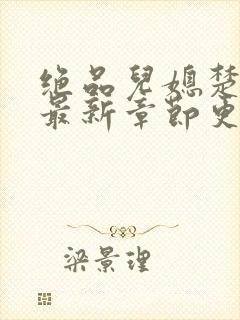 绝品儿媳楚
最新章节更
梁景理